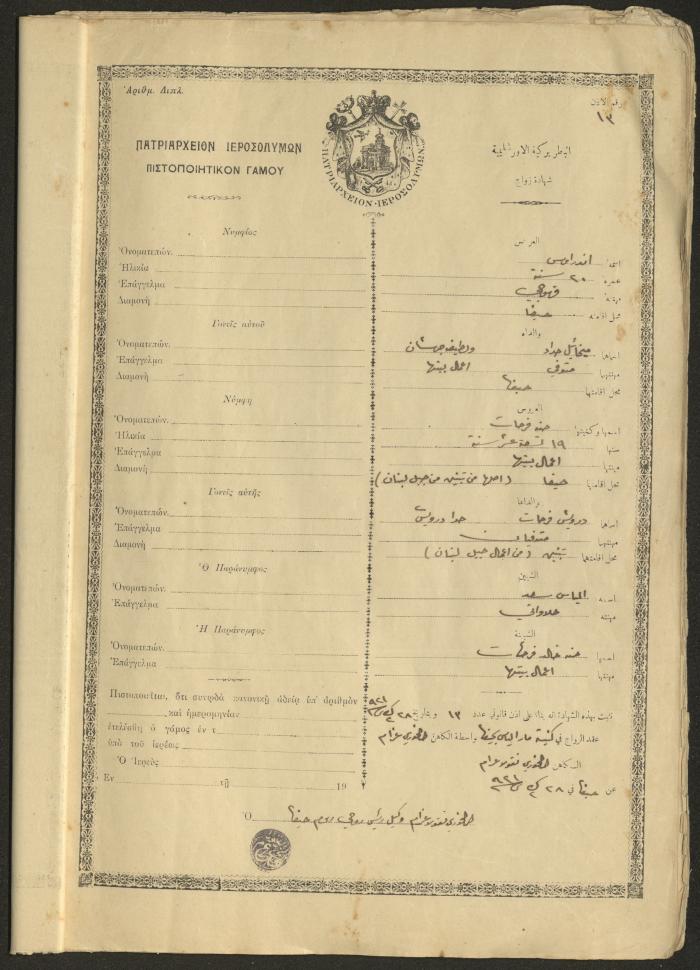 Ἀριθμ. Διπλ.
رقم الاذن
١٣
ΠΑΤΡΙΑΡΧΕΙΟΝ ΙΕΡΟΣΟΛΥΜΩΝ
ΠΙΣΤΟΠΟΙΗΤΙΚΟΝ ΓΑΜΟΥ
ΠΑΤΡΙΑΡΧΕΙΟΝ · ΙΕΡΟΣΟΛΥΜΩΝ
البطريركية الاورشليمية
شهادة زواج
Νυμφίος
Ὀνοματεπών.
Ἡλικία
Ἐπάγγελμα
Διαμονὴ
Γονεῖς αὐτοῦ
Ὀνοματεπών.
Ἐπάγγελμα
Διαμονὴ
Νύμφη
Ὀνοματεπών.
Ἡλικία
Ἐπάγγελμα
Διαμονὴ
Γονεῖς αὐτῆς
Ὀνοματεπών.
Ἐπάγγελμα
Διαμονὴ
Ὁ Παράνυμφος
Ὀνοματεπών.
Ἐπάγγελμα
Ἡ Παράνυμφος
Ὀνοματεπών.
Ἐπάγγελμα
Πιστοποιεῖται, ὅτι συνῳδὰ κανονικῇ ἀδείᾳ ὑπ' ἀριθμὸν
καὶ ἡμερομηνίαν
ἐτελέσθη ὁ γάμος ἐν τ
ὑπὸ τοῦ ἱερέως
Ὁ Ἱερεὺς
Ἐν τῇ 19
العريس
اسمه اندراوس
عمره ٢٠ سنة
مهنته قهوجي
محل اقامته حيفا
والداه
اسماهما ميخائيل حداد ولطيفه
مهنتهما متوفي اعمال بيتها
محل اقامتهما حيفا
العروس
اسمها وكنيتها حنه فرحات
سنها ١٩ تسعة عشر سنة
مهنتها اعمال بيتها
محل اقامتها حيفا (اصلها من تبنين من جبل لبنان)
والداها
اسماهما درويش فرحات درويش
مهنتهما متوفيان
محل اقامتهما تبنين (من اعمال جبل لبنان)
الشبين
اسمه الياس سعد
مهنته حلواني
الشبينة
اسمها حنه خالد فرحات
مهنتها اعمال بيتها
ثابت بهذه الشهادة انه بناء على اذن قانوني عدد ١٣ وبتاريخ ٢٨ ٩٢١
عقد الزواج في كنيسة مار الياس بحيفا بواسطة الكاهن الخوري عزام
الكاهن الخوري نقولا عزام
عن حيفا في ٢٨ ٩٢١
Ὁ الخوري نقولا عزام وكيل رئيس روحي روم حيفا